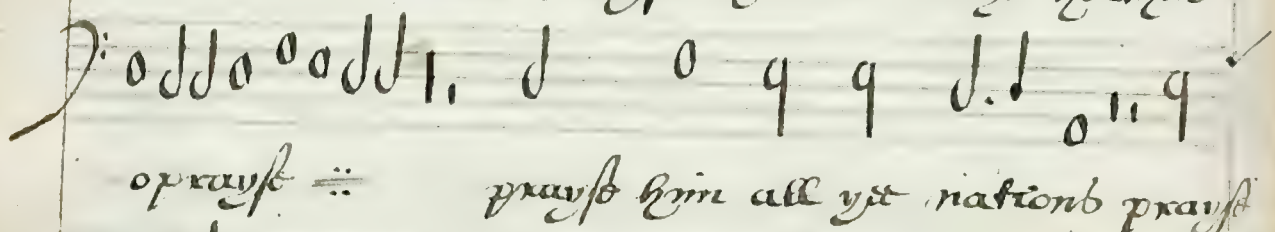 o prayse :||: prayse him all yee nations prayse